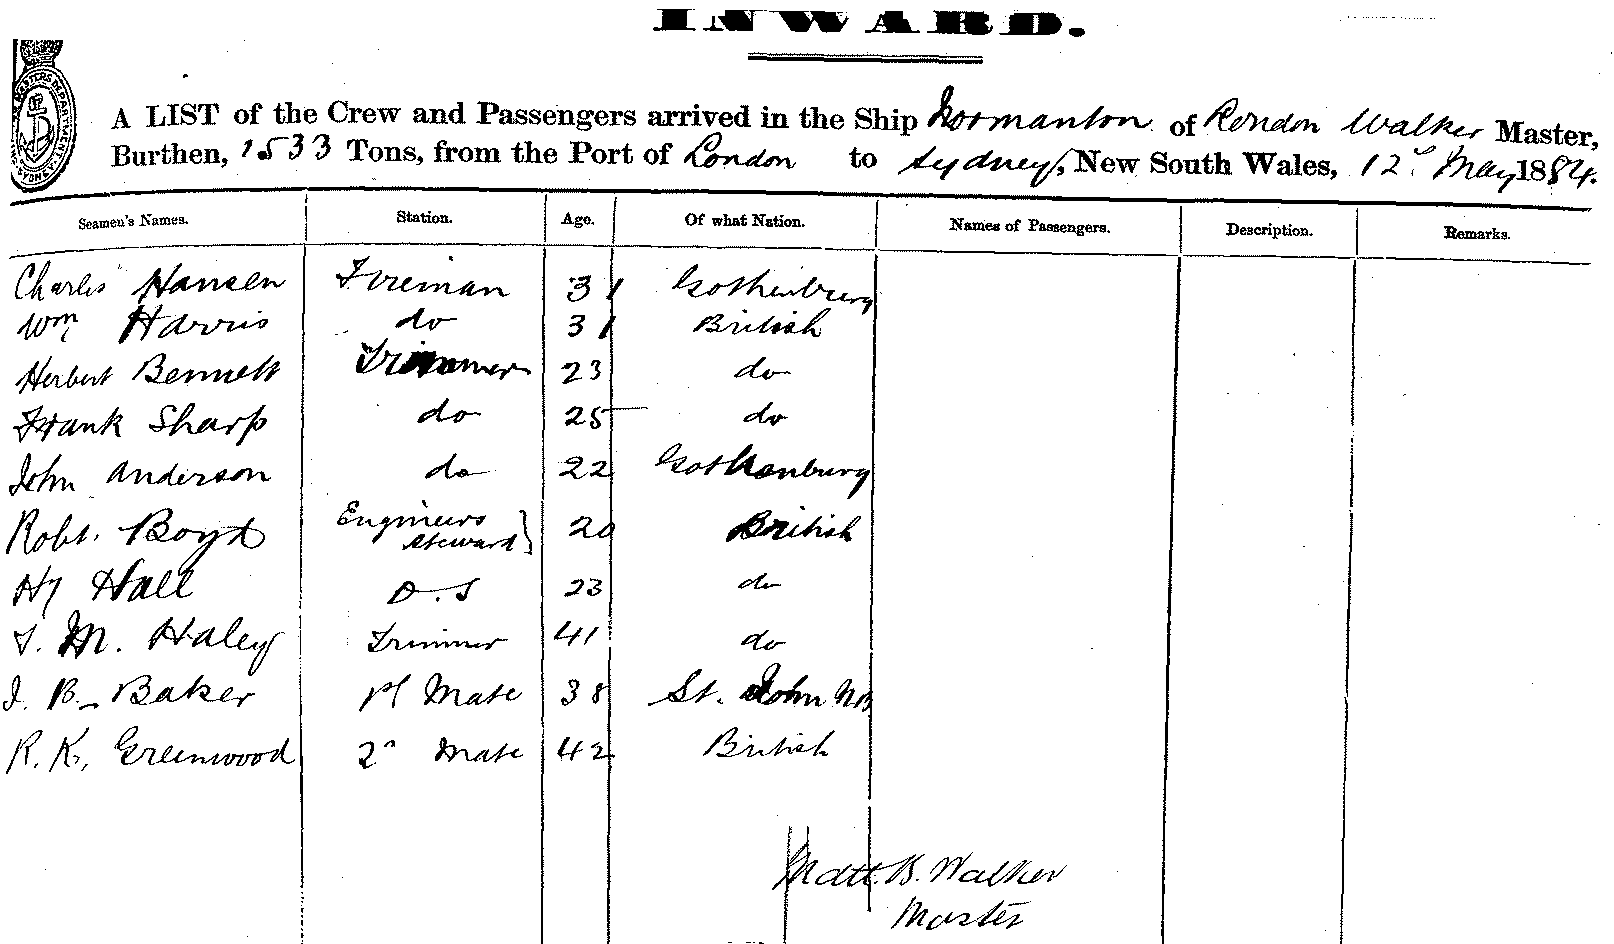 INWARD.
A LIST of the Crew and Passengers arrived in the Ship Normanton of London Walker Master,
Burthen, 1533 Tons, from the Port of London to Sydney, New South Wales, 12 May 1884.
Seamen's Names. Station. Age. Of what Nation. Names of Passengers. Description. Remarks.
Charles Hansen Fireman 31 Gothenburg
Wm Harris do 31 British
Herbert Bennett Trimmer 23 do
Frank Sharp do 25 do
John Anderson do 22 Gothenburg
Robt. Boyd Engineers steward } 20 British
Hy Hall O.S 23 do
T. M. Haley Trimmer 41 do
J. B. Baker 1st Mate 38 St. John NB
R. K. Greenwood 2d Mate 42 British
Matt. B. Walker
Master